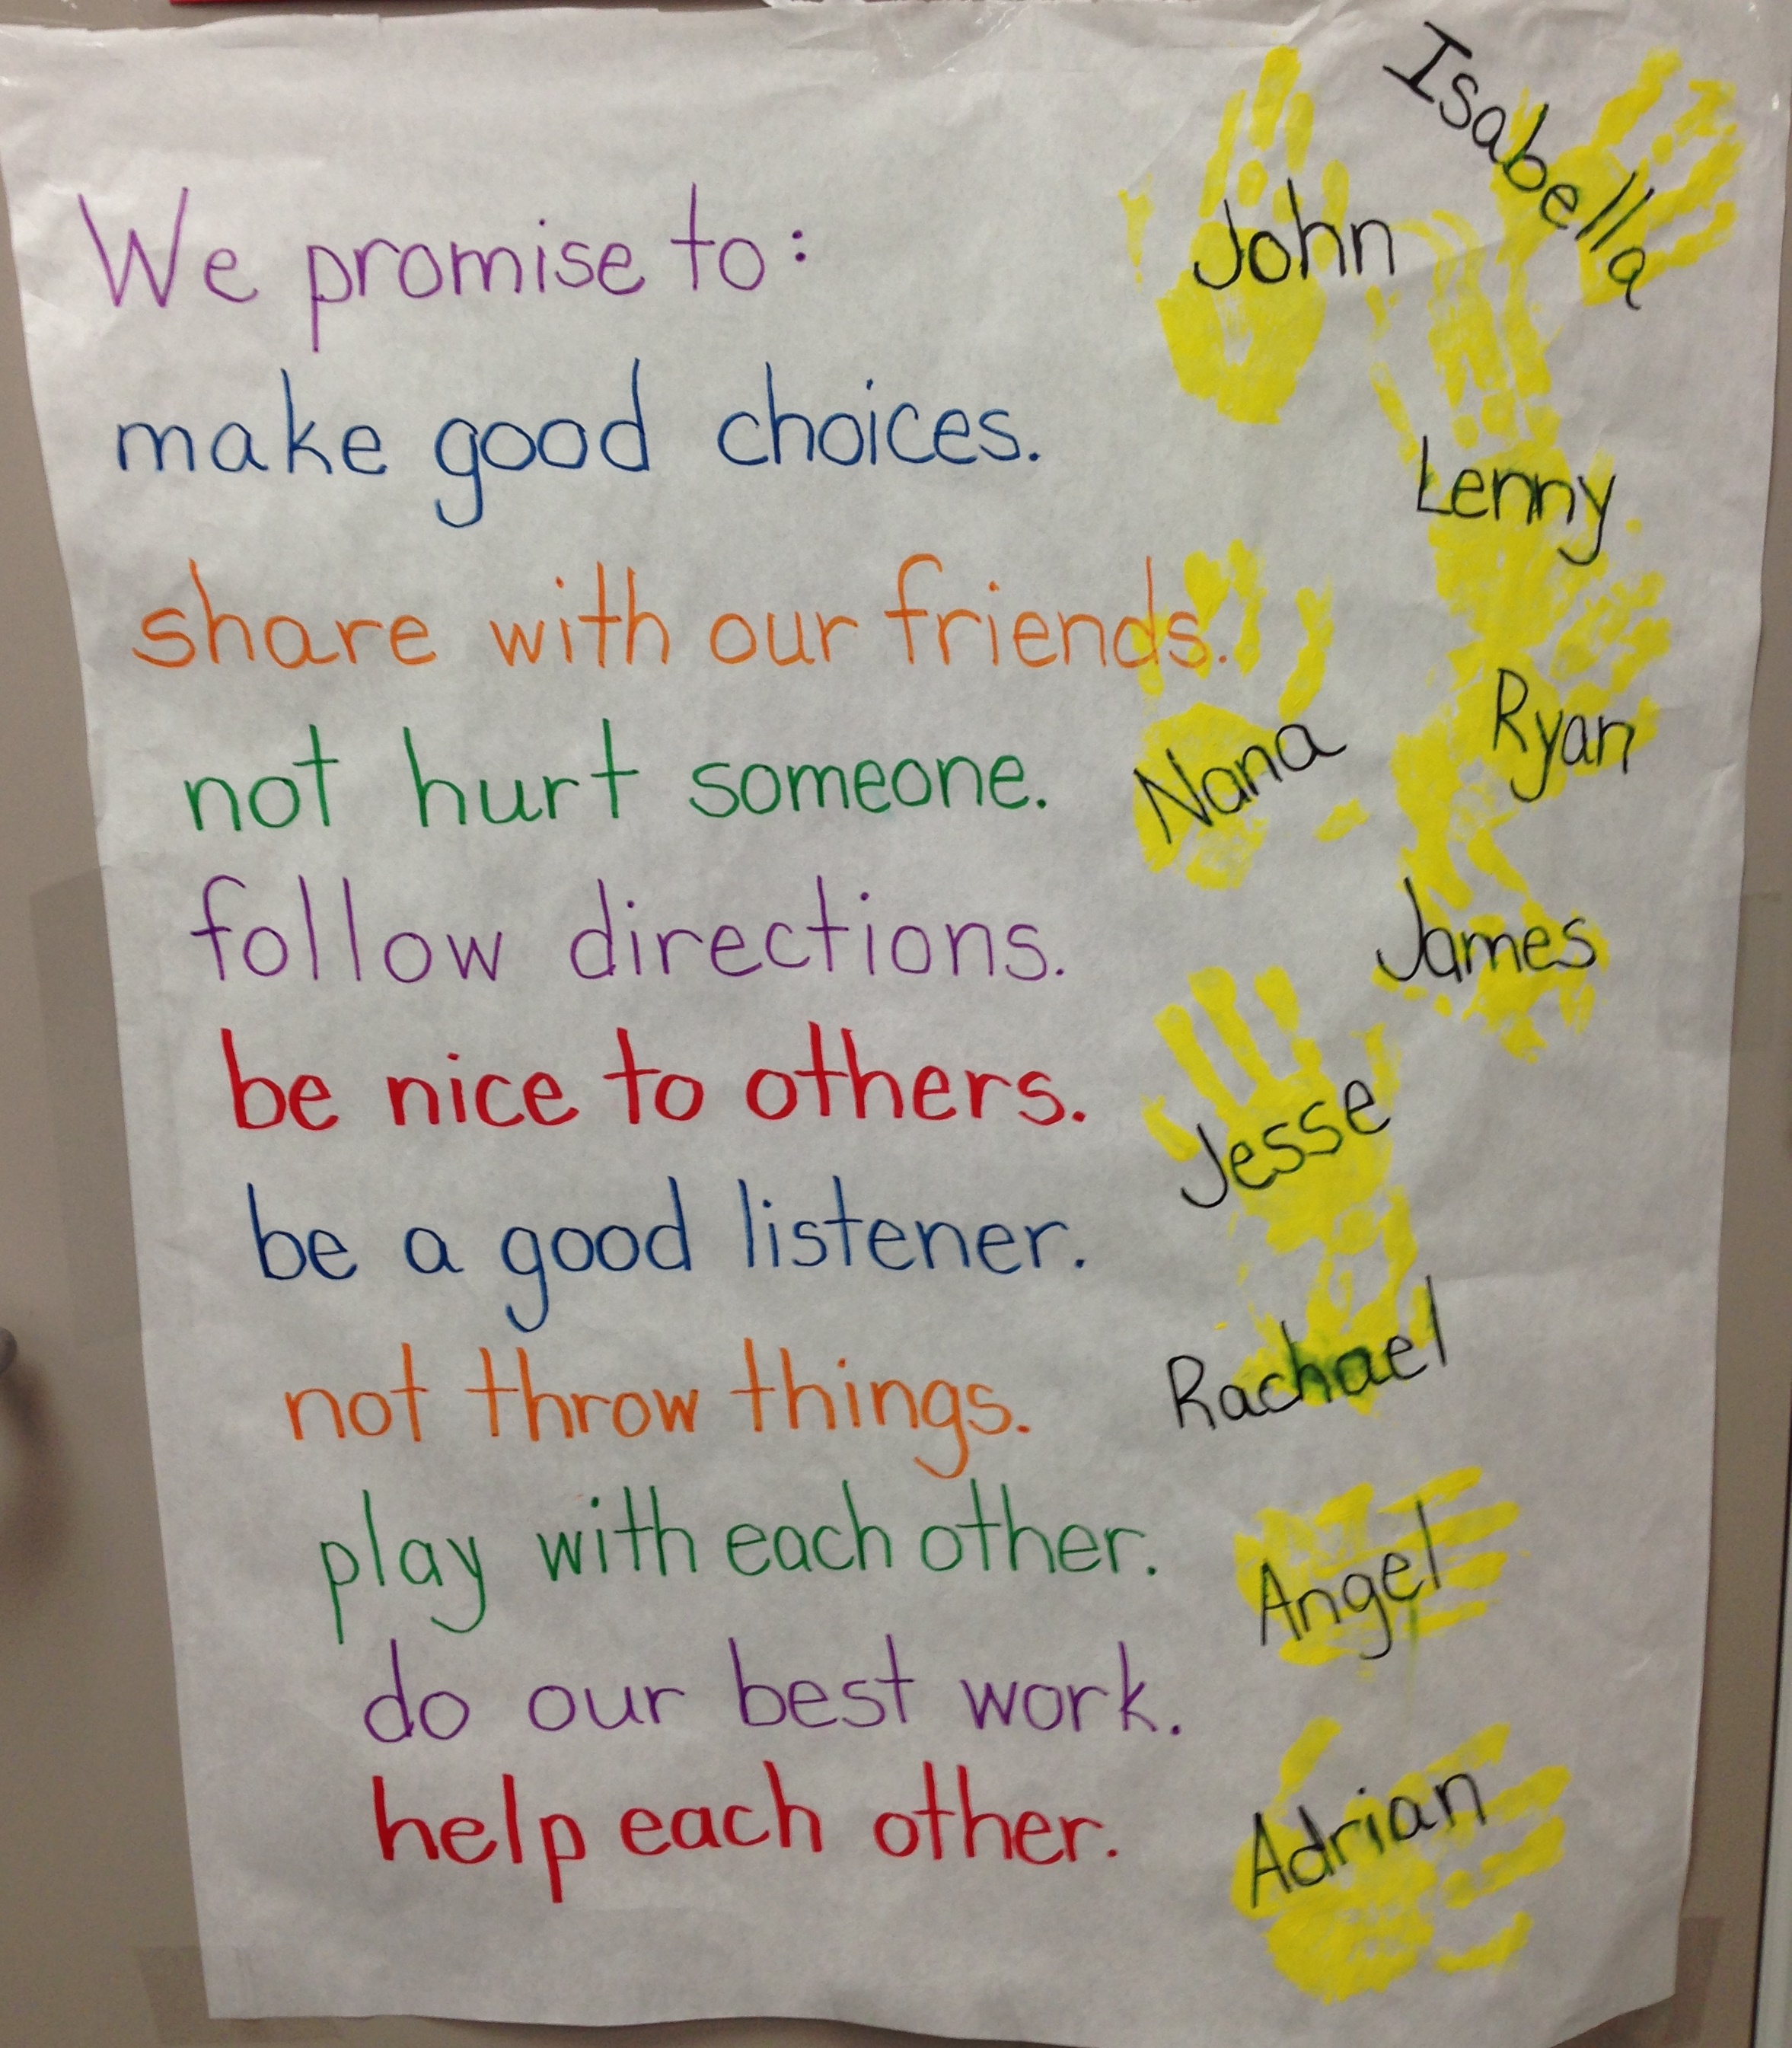 We promise to:
make good choices.
share with our friends.
not hurt someone.
follow directions.
be nice to others.
be a good listener.
not throw things.
play with each other.
do our best work.
help each other.
Isabella
John
Lenny
Ryan
Nana
James
Jesse
Rachael
Angel
Adrian